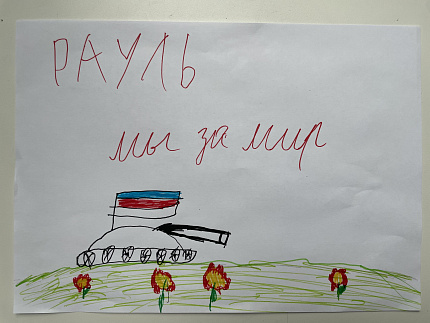 РАУЛЬ
мы за мир